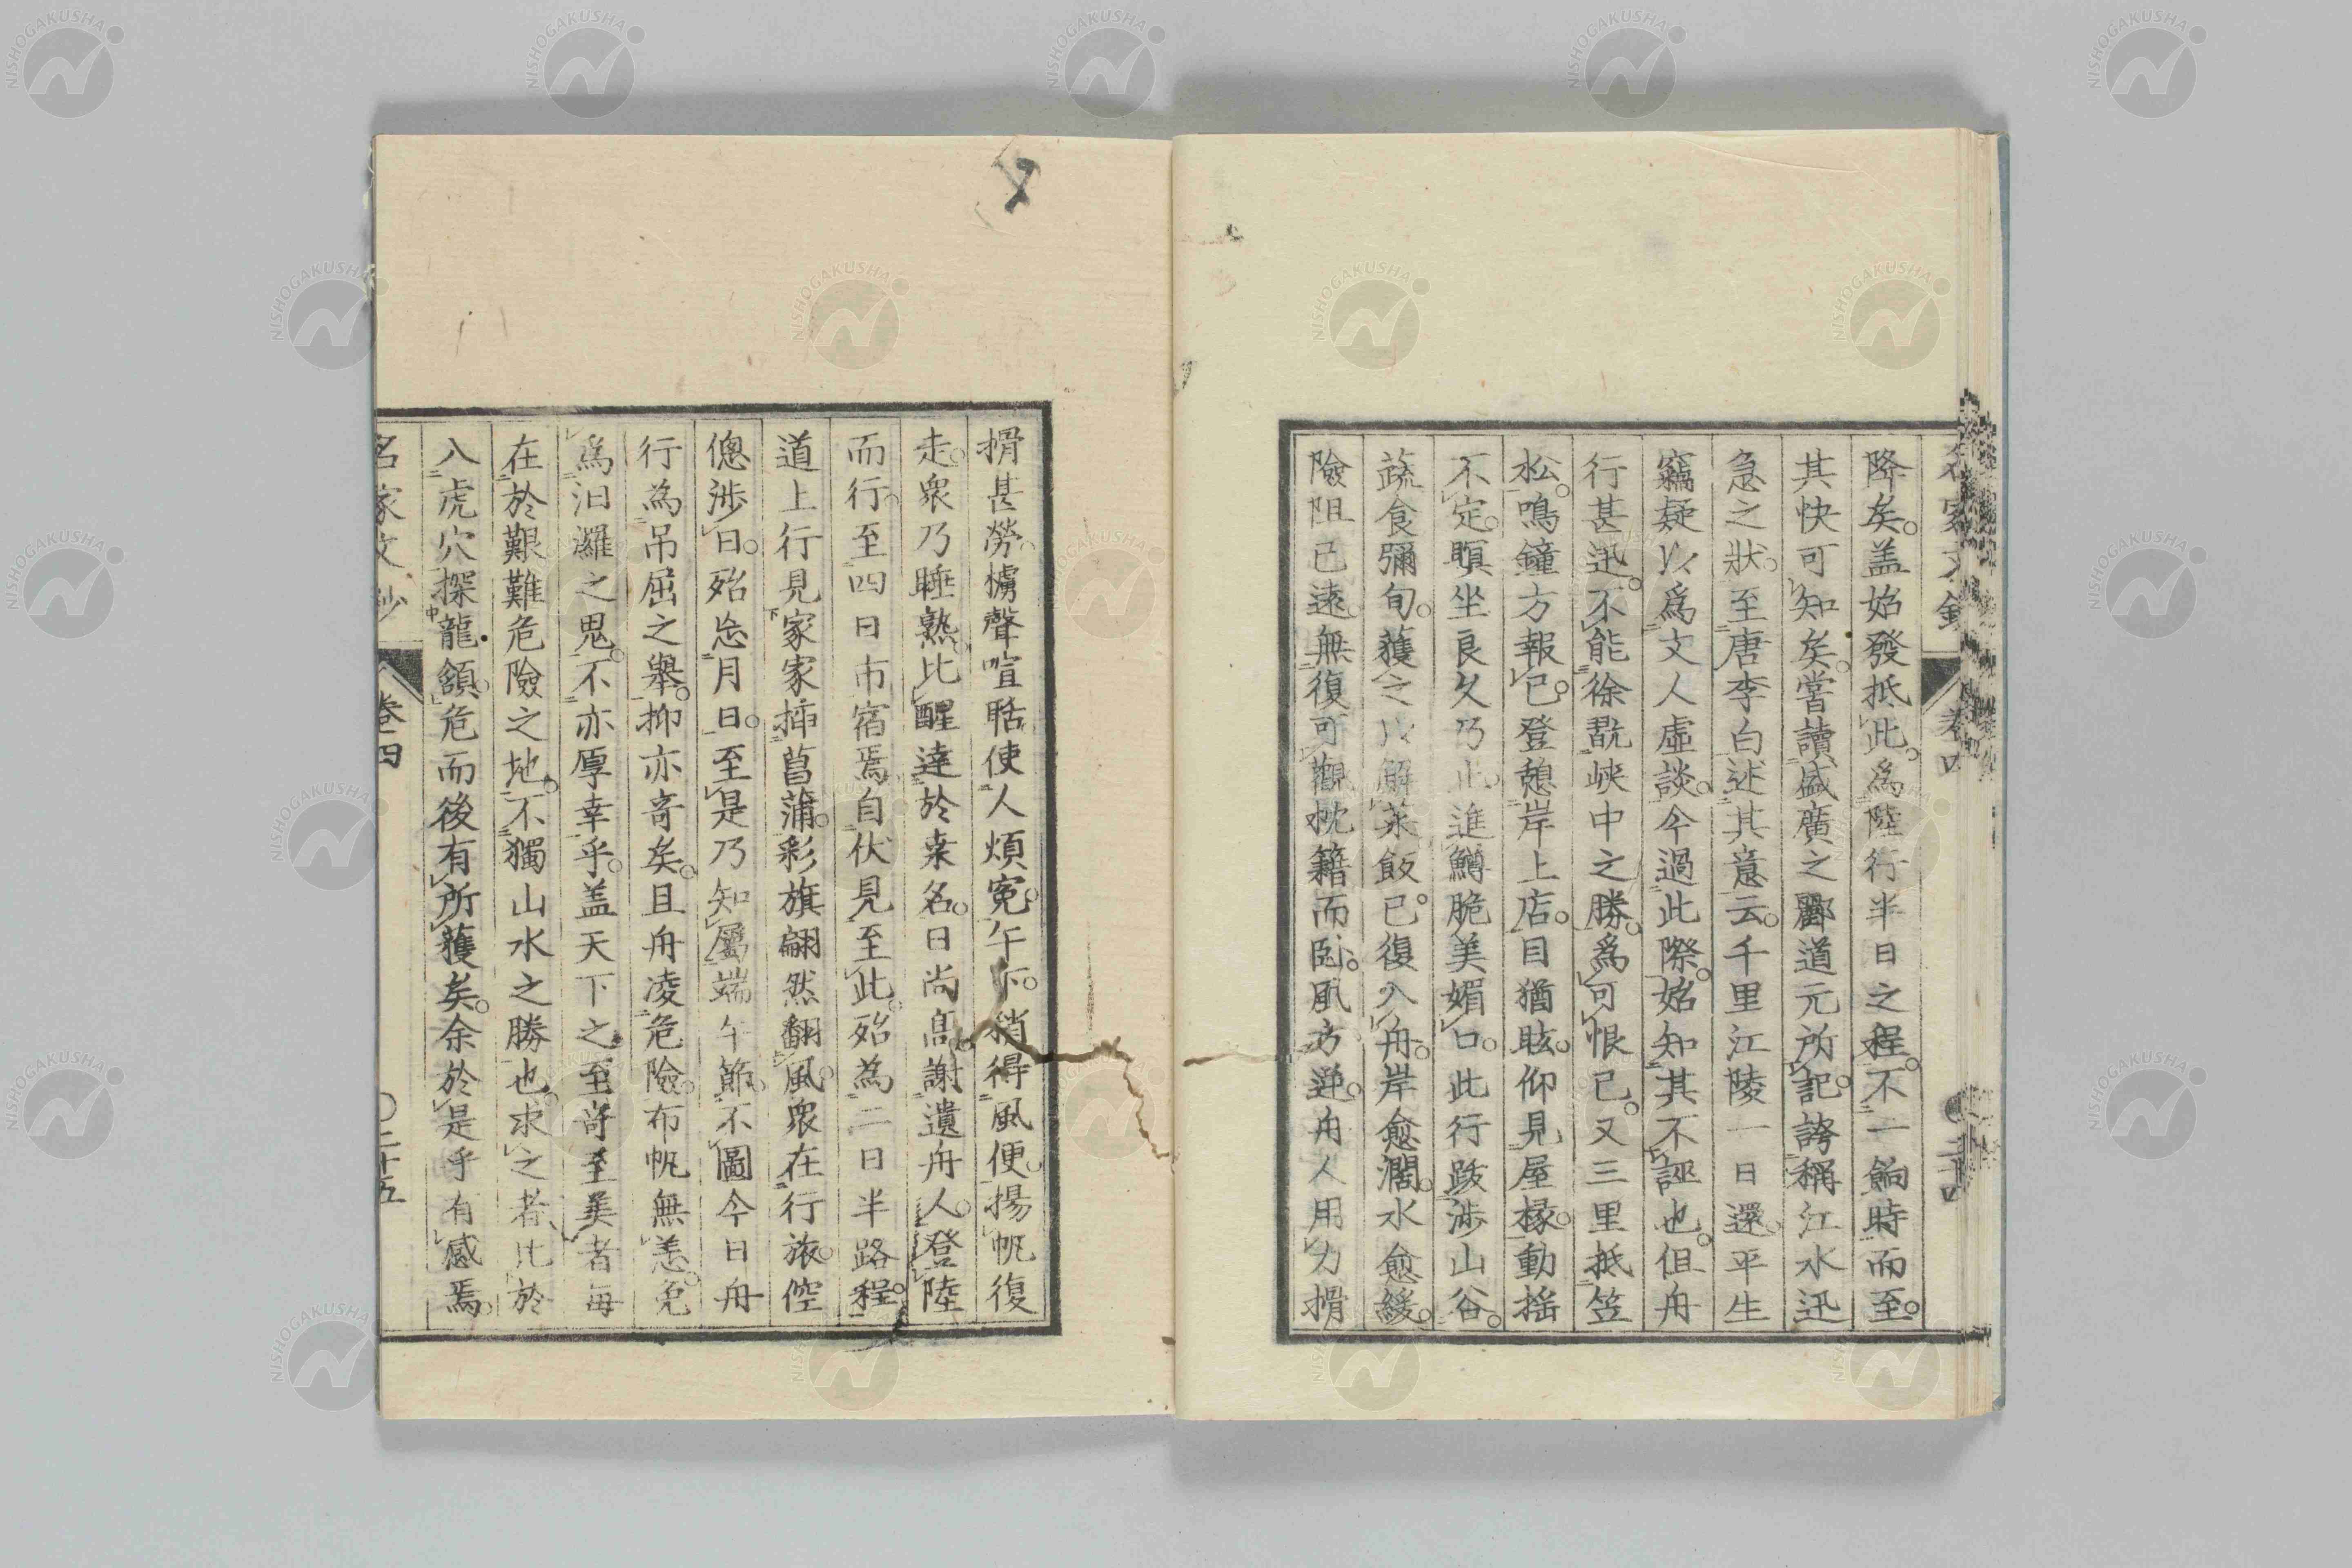 降矣。盖始發抵此。爲陸行半日之程。不一餉時而至。
其快可知矣。嘗讀盛廣之酈道元所記。誇稱江水迅
急之狀。至唐李白述其意云。千里江陵一日還。平生
竊疑以爲文人虛談。今過此際。始知其不誣也。但舟
行甚迅。不能徐翫峽中之勝。爲可恨已。又三里抵笠
松。鳴鐘方報巳。登憩岸上店。目猶眩。仰見屋椽。動搖
不定。瞑坐良久乃止。進鱒脆美媚口。此行跋涉山谷。
蔬食彌旬。獲之以解菜飯已。復入舟。岸愈濶。水愈緩。
險阻已遠。無復可觀。枕籍而臥。風方逆。舟人用力搰
搰甚勞。櫓聲喧聒使人煩寃。午下。稍得風便。揚帆復
走。衆乃睡熟。比醒達於桒名。日尚髙。謝遺舟人。登陸
而行。至四日市宿焉。自伏見至此。殆為二日半路程。
道上行見家家揷菖蒲。彩旗翩然翻風。衆在行旅。倥
傯涉日。殆忘月日。至是乃知屬端午節。不圖今日舟
行為吊屈之舉。抑亦奇矣。且舟凌危險。布帆無恙。免
爲汨灕之鬼。不亦厚幸乎。盖天下之至奇至美者每
在於艱難危險之地。不獨山水之勝也。求之者比於
入虎穴探龍頷。危而後有所獲矣。余於是乎有感焉。
名家文鈔
卷四
二十五